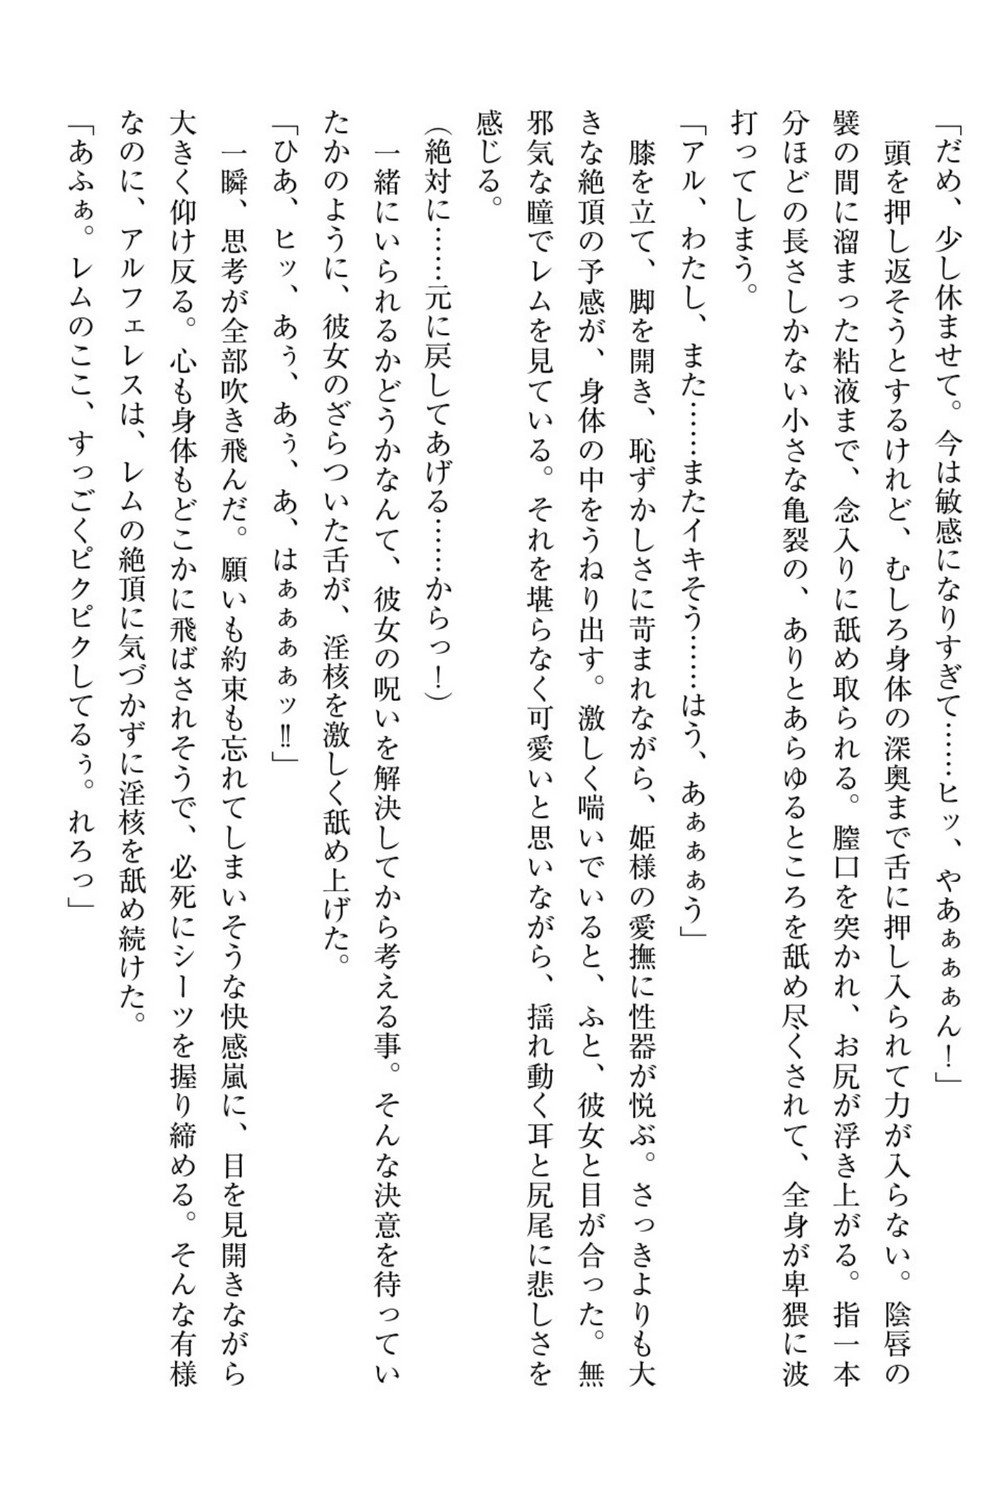 「だめ、少し休ませて。今は敏感になりすぎて……ヒッ、やあぁぁぁん！」
　頭を押し返そうとするけれど、むしろ身体の深奥まで舌に押し入られて力が入らない。陰唇の
襞の間に溜まった粘液まで、念入りに舐め取られる。膣口を突かれ、お尻が浮き上がる。指一本
分ほどの長さしかない小さな亀裂の、ありとあらゆるところを舐め尽くされて、全身が卑猥に波
打ってしまう。
「アル、わたし、また……またイキそう……はう、あぁぁぁう」
　膝を立て、脚を開き、恥ずかしさに苛まれながら、姫様の愛撫に性器が悦ぶ。さっきよりも大
きな絶頂の予感が、身体の中をうねり出す。激しく喘いでいると、ふと、彼女と目が合った。無
邪気な瞳でレムを見ている。それを堪らなく可愛いと思いながら、揺れ動く耳と尻尾に悲しさを
感じる。
（絶対に……元に戻してあげる……からっ！）
　一緒にいられるかどうかなんて、彼女の呪いを解決してから考える事。そんな決意を待ってい
たかのように、彼女のざらついた舌が、淫核を激しく舐め上げた。
「ひあ、ヒッ、あぅ、あぅ、あ、はぁぁぁぁッ‼」
　一瞬、思考が全部吹き飛んだ。願いも約束も忘れてしまいそうな快感嵐に、目を見開きながら
大きく仰け反る。心も身体もどこかに飛ばされそうで、必死にシーツを握り締める。そんな有様
なのに、アルフェレスは、レムの絶頂に気づかずに淫核を舐め続けた。
「あふぁ。レムのここ、すっごくピクピクしてるぅ。れろっ」